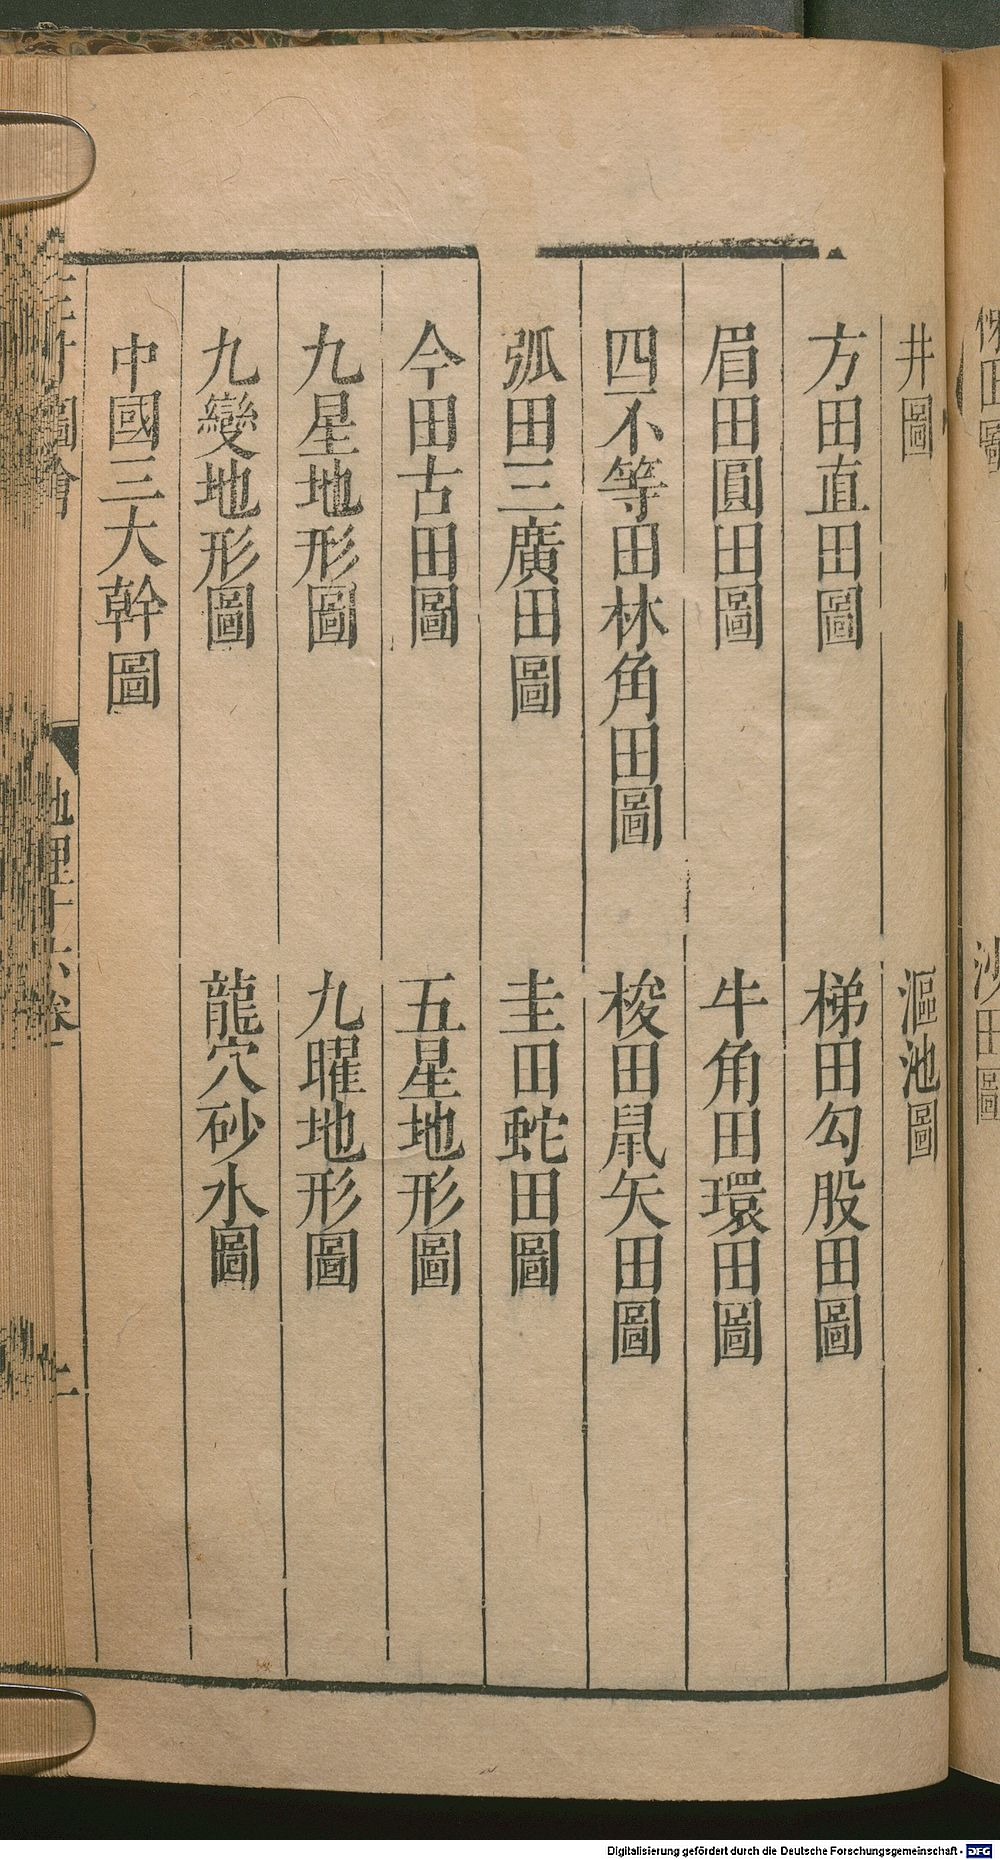 井圖　漚池圖
方田直田圖　梯田勾股田圖
眉田圓田圖　牛角田環田圖
四不等田林角田圖　梭田鼠矢田圖
弧田三廣田圖　圭田蛇田圖
今田古田圖　五星地形圖
九星地形圖　九曜地形圖
九變地形圖　龍穴砂水圖
中國三大幹圖
圖會　地理十六卷
沙田圖
Digitalisierung gefördert durch die Deutsche Forschungsgemeinschaft - DFG